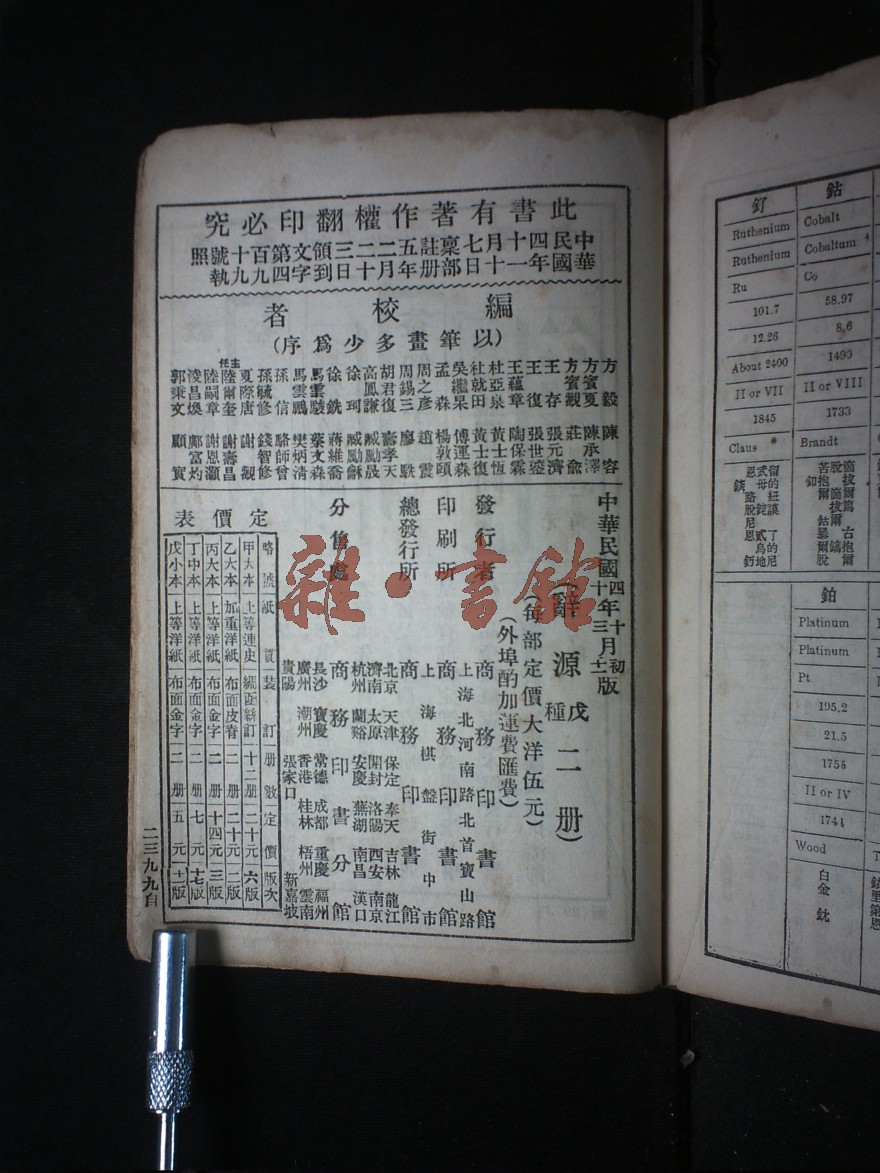 此書有著作權翻印必究
中華民國四年十一月十七日稟部註册五年二月二十三日領到文字第四百九十九號執照
編校者
(以筆畫多少爲序)
方毅 陳容
方賓夏 陳承澤
方賓觀 莊俞
王存 張元濟
王復 張世鎏
王蘊章 陶保霖
杜亞泉 黃士恆
杜就田 黃士復
吳繼杲 傅運森
孟森 楊敦頤
周之彥 趙震
周錫三
胡君復 壽孝天
高鳳謙 臧勵晟
徐珂 臧勵龢
徐銑 蔣維喬
馬雲駿 蔡文森
馬雲鵬 樊炳清
孫信 駱師曾
孫毓修 錢智修
夏際唐 謝觀
主任 陸爾奎 謝壽昌
陸嗣章 謝恩灝
凌昌煥 鄺富灼
郭秉文 顧實
中華民國四年十月初版
十年三月十二版
(辭源戊種二册)
(每部定價大洋伍元)
(外埠酌加運費匯費)
發行者 商務印書館
上海北河南路北首寶山路
印刷所 商務印書館
上海棋盤街中市
總發行所 商務印書館
北京 天津 保定 奉天 吉林 龍江
濟南 太原 開封 洛陽 西安 南京
杭州 蘭谿 安慶 蕪湖 南昌 漢口
分售處 商務印書分館
長沙 寶慶 常德 成都 重慶 福州
廣州 潮州 香港 桂林 梧州 雲南
貴陽 張家口 新嘉坡
定價表
略號 紙質 裝訂 册數 定價 版次
甲大本 上等連史 綢函絲訂 十二册 二十元 六版
乙大本 加重洋紙 布面皮脊 二册 二十元 二版
丙大本 上等洋紙 布面金字 二册 十四元 三版
丁中本 上等洋紙 布面金字 二册 七元 十七版
戊小本 上等洋紙 布面金字 二册 五元 十二版
二三九九自
雜·書館
釕
Ruthenium
Ruthenium
Ru
101.7
12.26
About 2400
II or VII
1845
Claus
鈷
Cobalt
Cobaltum
Co
58.97
8.6
1490
II or VIII
1733
Brandt
鉑
Platinum
Platinum
Pt
195.2
21.5
1755
II or IV
1741
Wood
白金 鈋